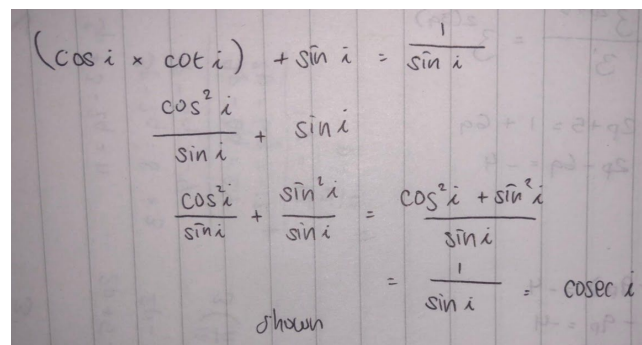 (cos i × cot i) + sin i = 1/sin i
cos² i/sin i + sin i
cos² i/sin i + sin² i/sin i = cos² i + sin² i/sin i
= 1/sin i = cosec i
shown